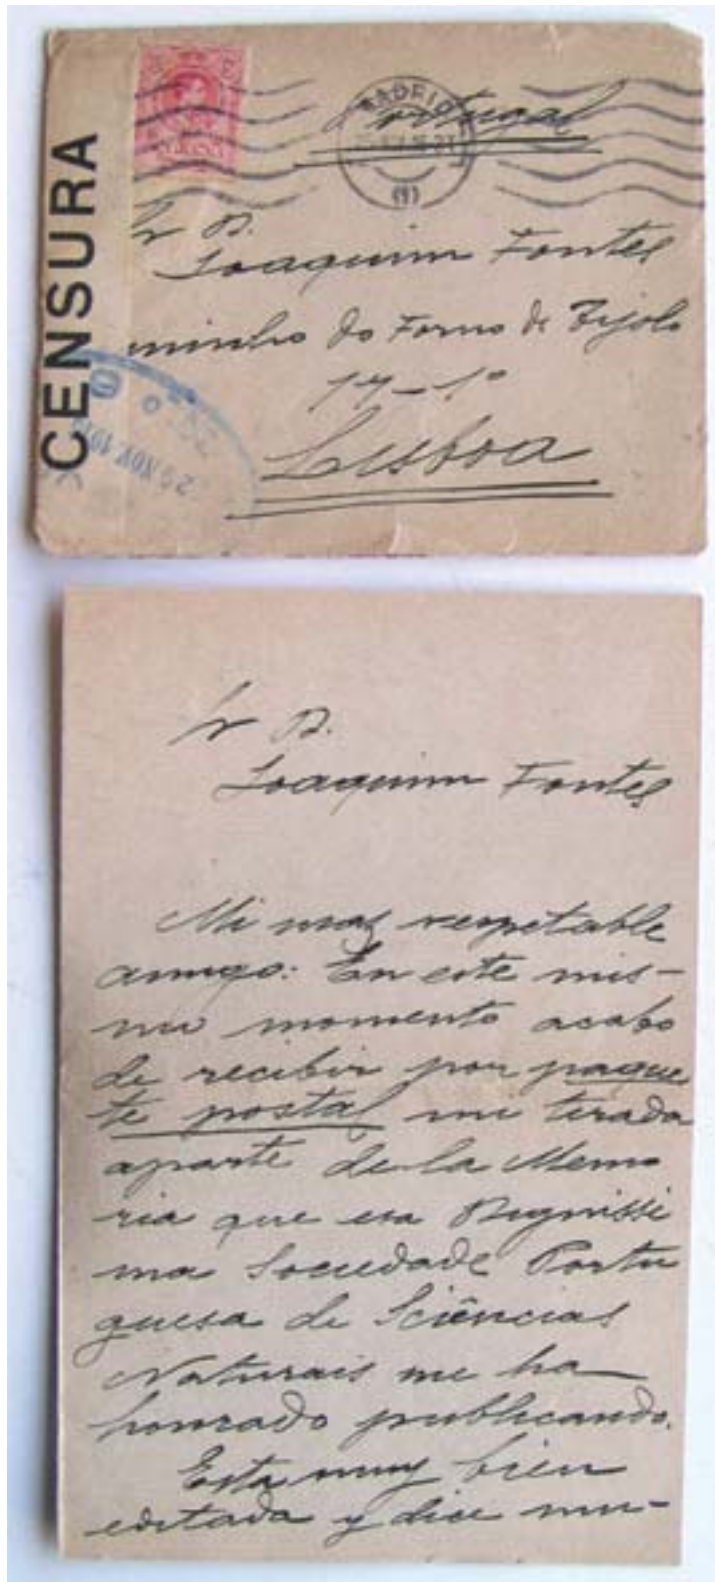 CENSURA
MADRID
Portugal
Sr D.
Joaquim Fontes
minho do Forno do Tijolo
17-1º
Lisboa
29 NOV. 191
Sr D.
Joaquim Fontes
Mi mas respetable
amigo: En este mis-
mo momento acabo
de recibir por paque
te postal mi tirada
aparte de la Memo
ria que esa Dignissi
ma Sociedade Portu
guesa de Sciências
Naturais me ha
honrado publicando.
Esta muy bien
editada y dice mu-